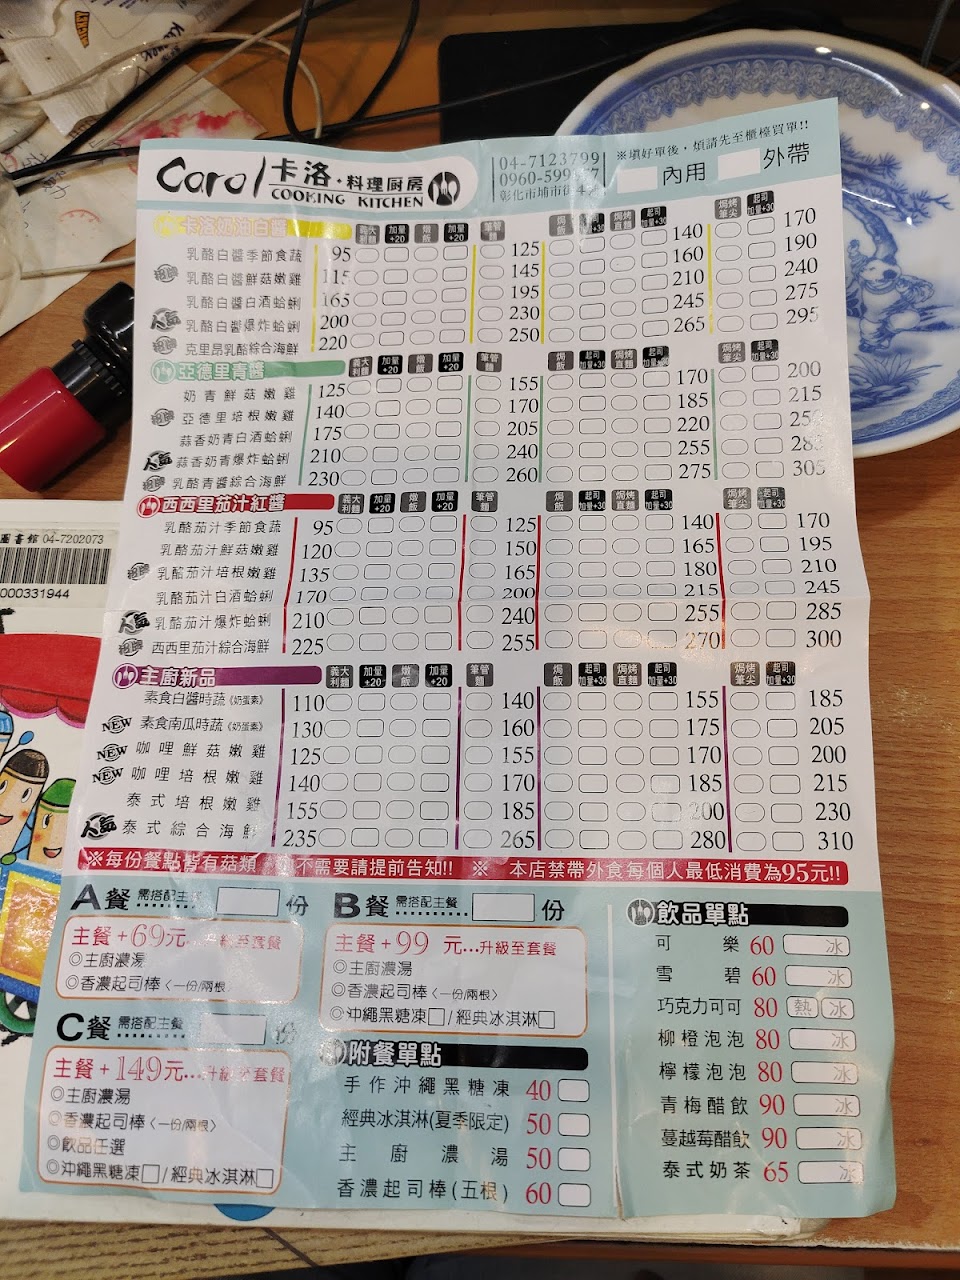 Carol 卡洛・料理廚房
COOKING KITCHEN
04-7123799
0960-599
彰化市埔市街
※填好單後，煩請先至櫃檯買單!!
內用 外帶
卡洛奶油白醬 義大利麵 加量+20 燉飯 加量+20 筆管麵 焗飯 起司加量+30 焗烤直麵 起司加量+30 焗烤筆尖 起司加量+30
乳酪白醬季節食蔬 95 125 140 170
招牌 乳酪白醬鮮菇嫩雞 115 145 160 190
乳酪白醬白酒蛤蜊 165 195 210 240
人氣 乳酪白醬爆炸蛤蜊 200 230 245 275
招牌 克里昂乳酪綜合海鮮 220 250 265 295
亞德里青醬 義大利麵 加量+20 燉飯 加量+20 筆管麵 焗飯 起司加量+30 焗烤直麵 起司加量+30 焗烤筆尖 起司加量+30
奶青鮮菇嫩雞 125 155 170 200
招牌 亞德里培根嫩雞 140 170 185 215
蒜香奶青白酒蛤蜊 175 205 220
人氣 蒜香奶青爆炸蛤蜊 210 240 255
招牌 乳酪青醬綜合海鮮 230 260 275 305
西西里茄汁紅醬 義大利麵 加量+20 燉飯 加量+20 筆管麵 焗飯 起司加量+30 焗烤直麵 起司加量+30 焗烤筆尖 起司加量+30
乳酪茄汁季節食蔬 95 125 140 170
乳酪茄汁鮮菇嫩雞 120 150 165 195
招牌 乳酪茄汁培根嫩雞 135 165 180 210
乳酪茄汁白酒蛤蜊 170 200 215 245
人氣 乳酪茄汁爆炸蛤蜊 210 240 255 285
招牌 西西里茄汁綜合海鮮 225 255 270 300
主廚新品 義大利麵 加量+20 燉飯 加量+20 筆管麵 焗飯 起司加量+30 焗烤直麵 起司加量+30 焗烤筆尖 起司加量+30
素食白醬時蔬《奶蛋素》 110 140 155 185
NEW 素食南瓜時蔬《奶蛋素》 130 160 175 205
NEW 咖哩鮮菇嫩雞 125 155 170 200
NEW 咖哩培根嫩雞 140 170 185 215
泰式培根嫩雞 155 185 200 230
人氣 泰式綜合海鮮 235 265 280 310
※每份餐點皆有菇類 不需要請提前告知!! ※ 本店禁帶外食每個人最低消費為95元!!
A餐 需搭配主餐 份
主餐+69元...升級至套餐
◎主廚濃湯
◎香濃起司棒〈一份/兩根〉
B餐 需搭配主餐 份
主餐+99元...升級至套餐
◎主廚濃湯
◎香濃起司棒〈一份/兩根〉
◎沖繩黑糖凍□/經典冰淇淋□
C餐 需搭配主餐 份
主餐+149元...升級至套餐
◎主廚濃湯
◎香濃起司棒〈一份/兩根〉
◎飲品任選
◎沖繩黑糖凍□/經典冰淇淋□
附餐單點
手作沖繩黑糖凍 40
經典冰淇淋(夏季限定) 50
主廚濃湯 50
香濃起司棒(五根) 60
飲品單點
可樂 60 冰
雪碧 60 冰
巧克力可可 80 熱 冰
柳橙泡泡 80 冰
檸檬泡泡 80 冰
青梅醋飲 90 冰
蔓越莓醋飲 90 冰
泰式奶茶 65 冰
圖書館 04-7202073
000331944